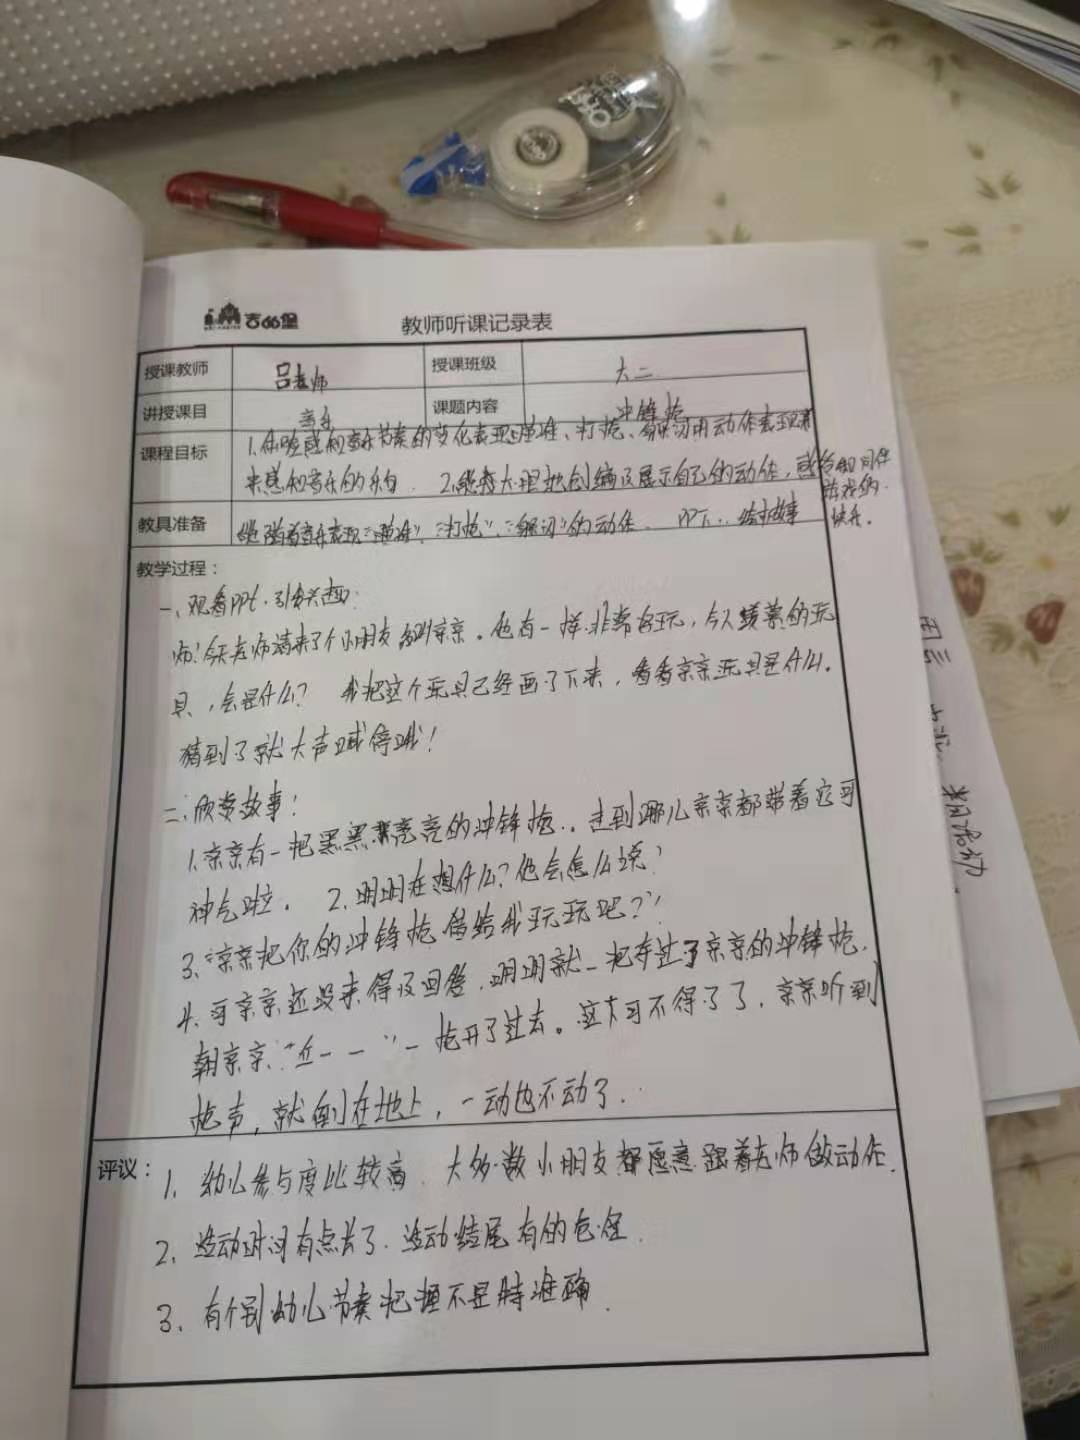 吉的堡
教师听课记录表
授课教师 吕老师 授课班级 大二
讲授课目 音乐 课题内容 冲锋枪
课程目标 1.体验感知音乐节奏的变化表现瞄准、打枪、 用动作表现
来感知音乐的 2.能大胆地创编及展示自己的动作，感受和同伴
游戏的
快乐。
教具准备 能随着音乐表现“瞄准”、“打枪”、 的动作. PPT.. 故事
教学过程：
一、观看PPt.引出兴趣:
师:今天老师请来了个小朋友 叫京京。他有一样非常好玩,令人羡慕的玩
具,会是什么? 我把这个玩具已经画了下来,看看京京玩具是什么.
猜到了就大声喊停哦!
二、欣赏故事:
1.京京有一把黑黑亮亮的冲锋枪.,走到哪儿京京都带着它可
神气啦. 2.明明在想什么?他会怎么说?
3.“京京把你的冲锋枪借给我玩玩吧?”!
4.可京京还没来得及回答,明明就一把夺过了京京的冲锋枪.
朝京京. 一枪开了过去。这下可不得了了,京京听到
枪声,就倒在地上,一动也不动了.
评议： 1. 幼儿参与度比较高. 大多数小朋友都愿意跟着老师做动作.
2. 活动时间有点长了.活动结尾有的仓促.
3. 有个别幼儿节奏把握不是特准确.